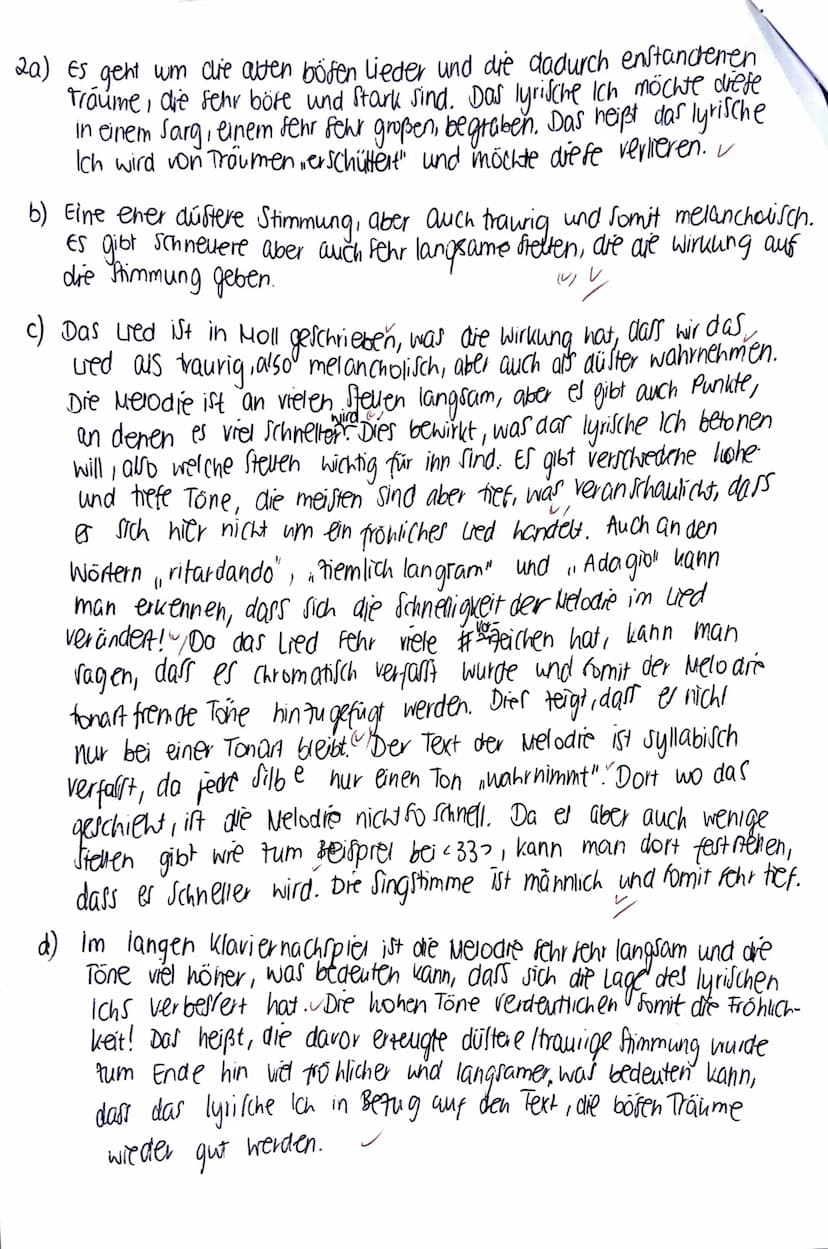 2a) Es geht um die alten bösen Lieder und die dadurch enstandenen
Träume, die sehr böse und stark sind. Das lyrische Ich möchte diese
in einem Sarg, einem sehr sehr großen, begraben. Das heißt das lyrische
Ich wird von Träumen „erschüttert" und möchte diese verlieren. ✓
b) Eine eher düstere Stimmung, aber auch traurig und somit melancholisch.
Es gibt schnellere aber auch sehr langsame Stellen, die die Wirkung auf
die Stimmung geben. (✓) ✓
c) Das Lied ist in Moll geschrieben, was die Wirkung hat, dass wir das
Lied als traurig, also melancholisch, aber auch als düster wahrnehmen.
Die Melodie ist an vielen Stellen langsam, aber es gibt auch Punkte,
an denen es viel schneller wird. Dies bewirkt, was das lyrische Ich betonen
will, also welche Stellen wichtig für ihn sind. Es gibt verschiedene hohe
und tiefe Töne, die meisten sind aber tief, was veranschaulicht, dass
es sich hier nicht um ein fröhliches Lied handelt. Auch an den
Wörtern „ritardando", „ziemlich langsam" und „Adagio" kann
man erkennen, dass sich die Schnelligkeit der Melodie im Lied
verändert! Da das Lied sehr viele # Vorzeichen hat, kann man
sagen, dass es chromatisch verfasst wurde und somit der Melodie
tonart fremde Töne hinzugefügt werden. Dies zeigt, dass es nicht
nur bei einer Tonart bleibt. (✓) Der Text der Melodie ist syllabisch
verfasst, da jede Silbe nur einen Ton „wahrnimmt". Dort wo das
geschieht, ist die Melodie nicht so schnell. Da es aber auch wenige
Stellen gibt wie zum Beispiel bei <33>, kann man dort feststellen,
dass es schneller wird. Die Singstimme ist männlich und somit sehr tief.
d) Im langen Klaviernachspiel ist die Melodie sehr sehr langsam und die
Töne viel höher, was bedeuten kann, dass sich die Lage des lyrischen
Ichs verbessert hat. ✓ Die hohen Töne verdeutlichen somit die Fröhlich-
keit! Das heißt, die davor erzeugte düstere/traurige Stimmung wurde
zum Ende hin viel fröhlicher und langsamer, was bedeuten kann,
dass das lyrische Ich in Bezug auf den Text, die bösen Träume
wieder gut werden. ✓